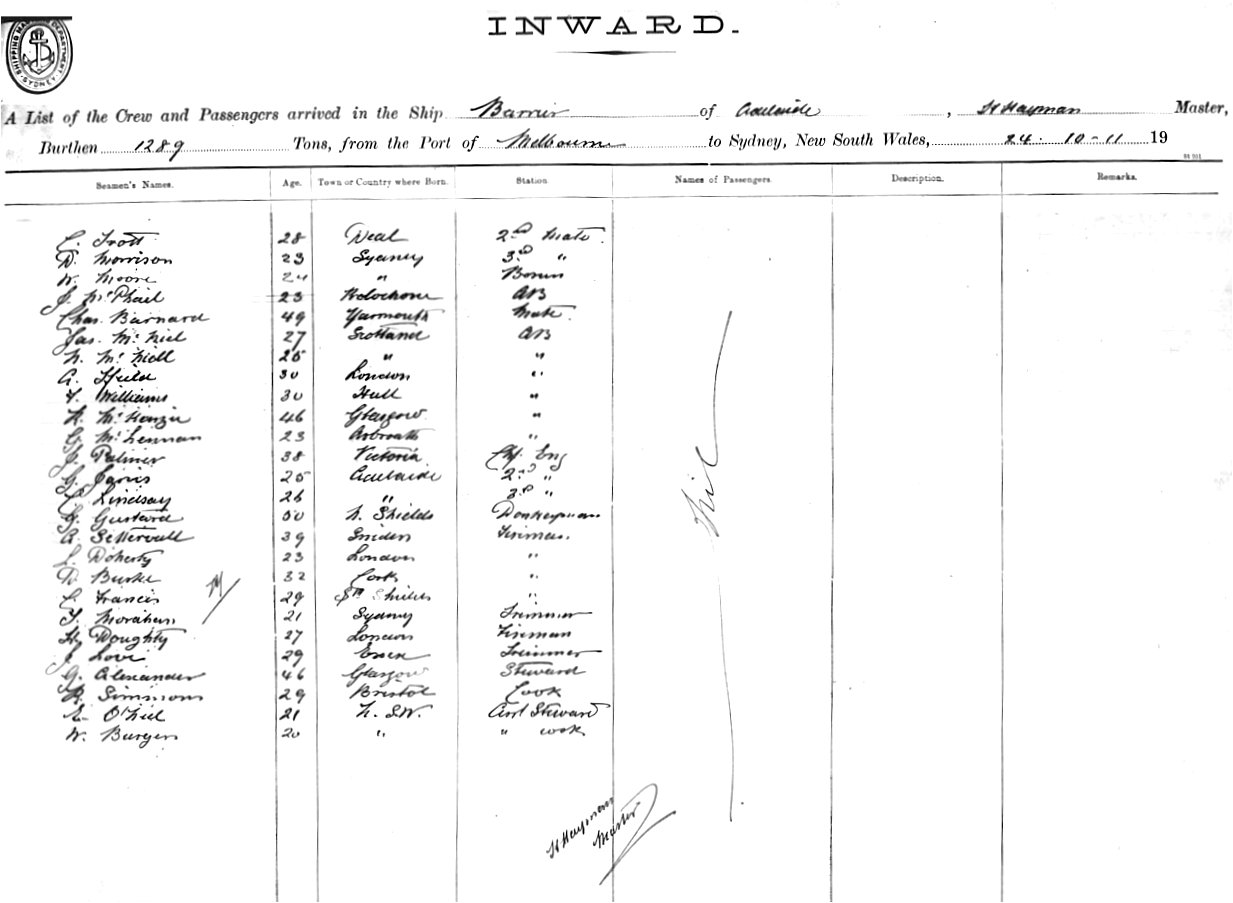 SHIPPING MASTER'S DEPARTMENT SYDNEY
INWARD.
A List of the Crew and Passengers arrived in the Ship Barrier of Adelaide, H Hayman Master,
Burthen 1289 Tons, from the Port of Melbourne to Sydney, New South Wales, 24-10-11 19
Seamen's Names. Age. Town or Country where Born. Station. Names of Passengers. Description. Remarks.
C. Trott 28 Deal 2nd Mate
D. Morrison 23 Sydney 3rd "
W. Moore 24 " Bosun
J. McPhail 23 AB
Chas. Barnard 49 Yarmouth Mate
Jas. McNiel 27 Scotland AB
N. McNiell 25 " "
A. Hield 30 London "
T. Williams 30 Hull "
K. McKenzie 46 Glasgow "
G. McLennan 23 Arbroath "
J. Palmer 38 Victoria Chf. Eng
G. Jarvis 25 Adelaide 2nd "
C. Lindsay 26 " 3rd "
J. Gustard 50 N. Shields Donkeyman
A. Settervall 39 Sniden Fireman
J. Doherty 23 London "
D. Burke 32 Cork "
C. Francis 29 Sth Shields "
T. Morahan 21 Sydney Trimmer
H. Doughty 27 London Fireman
J. Love 29 Essex Trimmer
G. Alexander 46 Glasgow Steward
R. Simmons 29 Bristol Cook
E. O'Niel 21 N.S.W. Asst Steward
W. Burgess 20 " " cook
Nil
H Hayman
Master